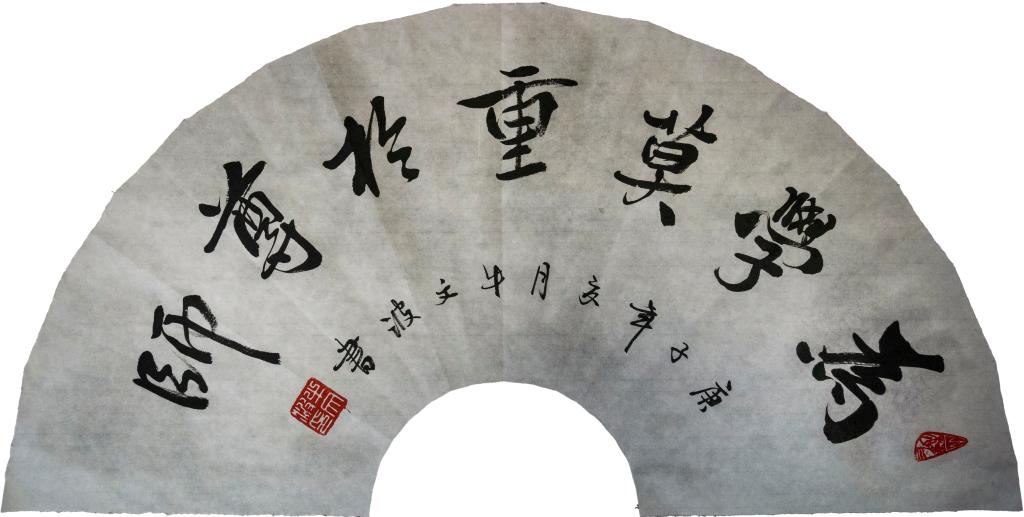 為學莫重於尊師
庚子年亥月牛文波書